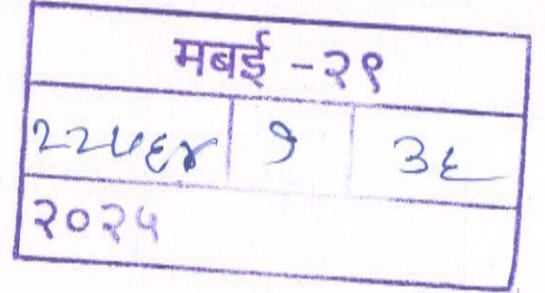 मबई -२९
२२५६४ १ ३६
२०२५